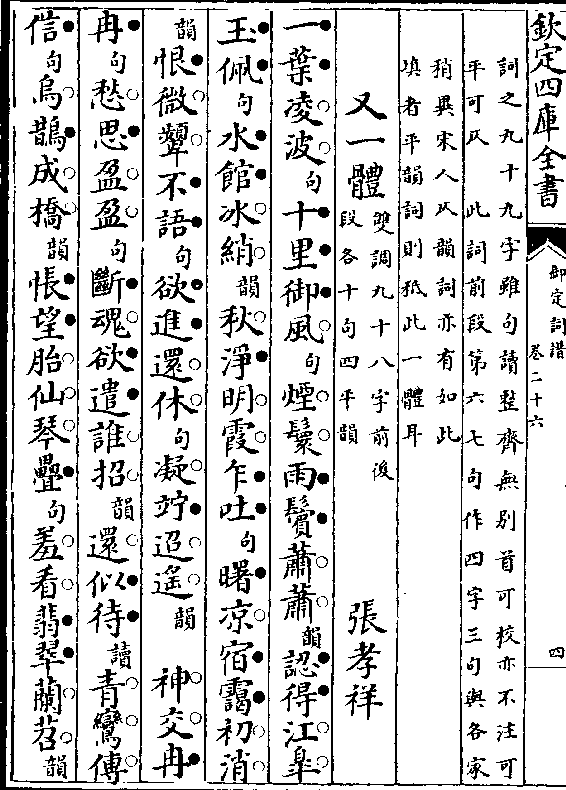 欽定四庫全書
御定詞譜
卷二十六
四
詞之九十九字雖句讀整齊無别首可校亦不注可
平可仄　此詞前段第六七句作四字三句與各家
稍異宋人仄韻詞亦有如此
填者平韻詞則秪此一體耳
又一體
雙調九十八字前後
段各十句四平韻
張孝祥
一葉凌波句十里御風句煙鬟雨鬢蕭蕭韻認得江臯
玉佩句水館冰綃韻秋淨明霞乍吐句曙凉宿靄初消
韻恨微顰不語句欲進還休句凝竚迢遥韻　神交冉
冉句愁思盈盈句斷魂欲遣誰招韻還似待讀青鸞傳
信句烏鵲成橋韻悵望胎仙琴疊句羞看翡翠蘭苕韻